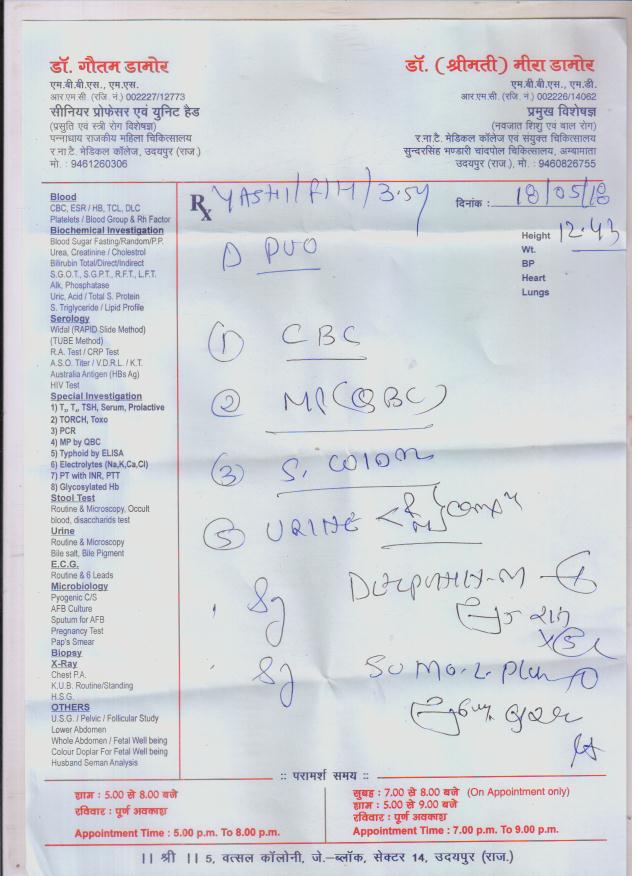 डॉ. गौतम डामोर
एम.बी.बी.एस., एम.एस.
आर.एम.सी. (रजि. नं.) 002227/12773
सीनियर प्रोफेसर एवं युनिट हैड
(प्रसुति एवं स्त्री रोग विशेषज्ञ)
पन्नाधाय राजकीय महिला चिकित्सालय
र.ना.टै. मेडिकल कॉलेज, उदयपुर (राज.)
मो. : 9461260306
डॉ. (श्रीमती) मीरा डामोर
एम.बी.बी.एस., एम.डी.
आर.एम.सी. (रजि. नं.) 002226/14062
प्रमुख विशेषज्ञ
(नवजात शिशु एवं बाल रोग)
र.ना.टै. मेडिकल कॉलेज एवं संयुक्त चिकित्सालय
सुन्दरसिंह भण्डारी चांदपोल चिकित्सालय, अम्बामाता
उदयपुर (राज.), मो. : 9460826755
Blood
CBC, ESR / HB, TCL, DLC
Platelets / Blood Group & Rh Factor
Biochemical Investigation
Blood Sugar Fasting/Random/P.P.
Urea, Creatinine / Cholestrol
Bilirubin Total/Direct/Indirect
S.G.O.T., S.G.P.T., R.F.T., L.F.T.
Alk, Phosphatase
Uric, Acid / Total S. Protein
S. Triglyceride / Lipid Profile
Serology
Widal (RAPID Slide Method)
(TUBE Method)
R.A. Test / CRP Test
A.S.O. Titer / V.D.R.L. / K.T.
Australia Antigen (HBs Ag)
HIV Test
Special Investigation
1) T₃, T₄, TSH, Serum, Prolactive
2) TORCH, Toxo
3) PCR
4) MP by QBC
5) Typhoid by ELISA
6) Electrolytes (Na,K,Ca,Cl)
7) PT with INR, PTT
8) Glycosylated Hb
Stool Test
Routine & Microscopy, Occult
blood, disaccharids test
Urine
Routine & Microscopy
Bile salt, Bile Pigment
E.C.G.
Routine & 6 Leads
Microbiology
Pyogenic C/S
AFB Culture
Sputum for AFB
Pregnancy Test
Pap's Smear
Biopsy
X-Ray
Chest P.A.
K.U.B. Routine/Standing
H.S.G.
OTHERS
U.S.G. / Pelvic / Follicular Study
Lower Abdomen
Whole Abdomen / Fetal Well being
Colour Doplar For Fetal Well being
Husband Seman Analysis
Rx YASHI/F/H/3.5y
दिनांक : 18/05/18
Height 12.43
Wt.
BP
Heart
Lungs
PUO
① CBC
② MP(QBC)
③ S.
⑤ URINE
Sy
Sy
:: परामर्श समय ::
शाम : 5.00 से 8.00 बजे
रविवार : पूर्ण अवकाश
Appointment Time : 5.00 p.m. To 8.00 p.m.
सुबह : 7.00 से 8.00 बजे (On Appointment only)
शाम : 5.00 से 9.00 बजे
रविवार : पूर्ण अवकाश
Appointment Time : 7.00 p.m. To 9.00 p.m.
।। श्री ।। 5, वत्सल कॉलोनी, जे.–ब्लॉक, सेक्टर 14, उदयपुर (राज.)